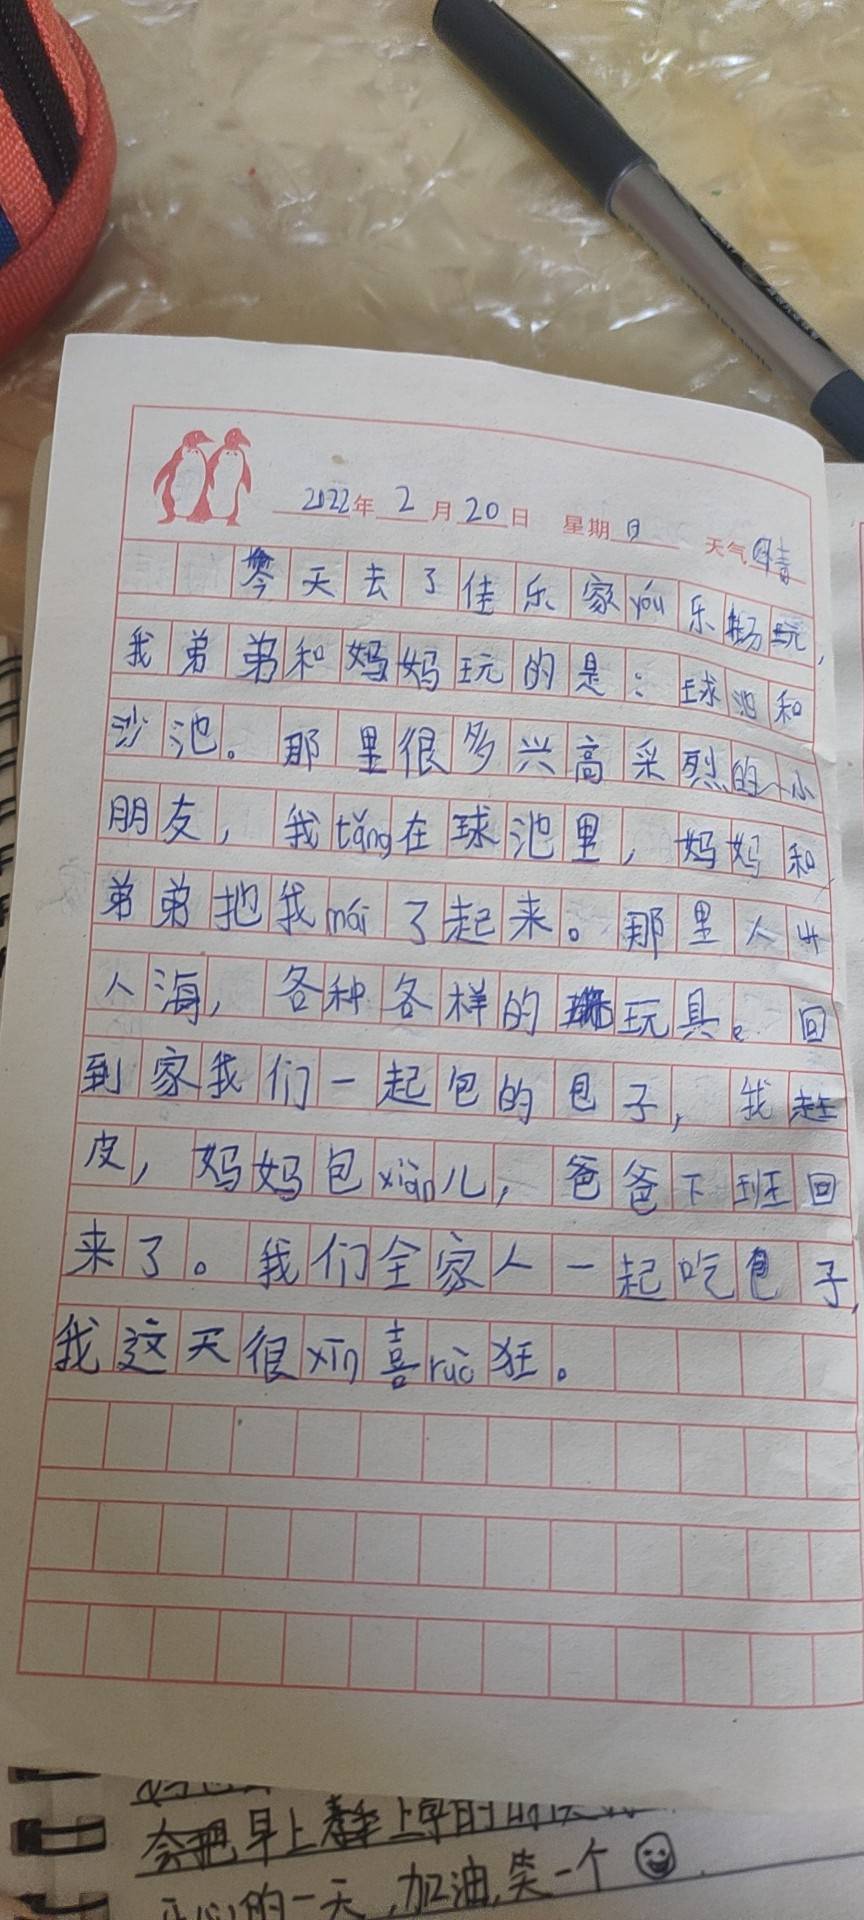 2022年2月20日 星期日 天气晴
今天去了佳乐家yóu乐场玩,
我弟弟和妈妈玩的是:球池和
沙池。那里很多兴高采烈的小
朋友,我tǎng在球池里,妈妈和
弟弟把我mái了起来。那里人山
人海,各种各样的玩具。回
到家我们一起包的包子,我赶
皮,妈妈包xiàn儿,爸爸下班回
来了。我们全家人一起吃包子,
我这天很xīn喜ruò狂。
会把早上
的一天,加油,笑一个